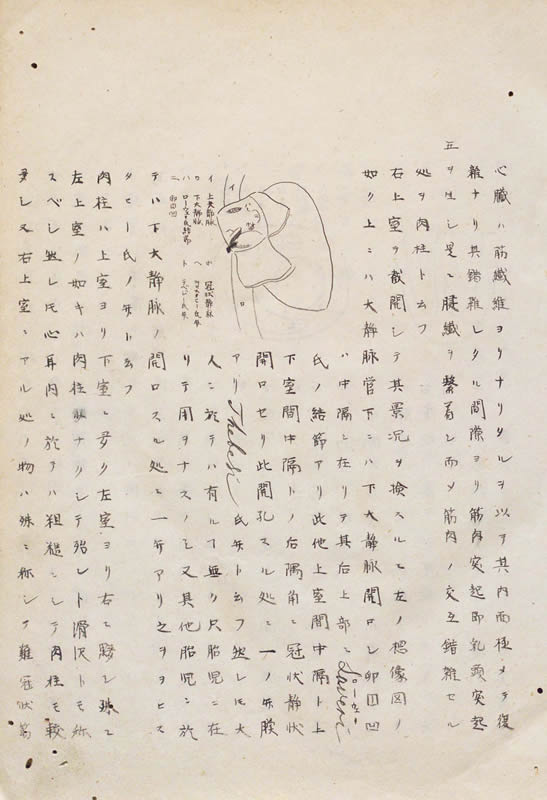 心臓ハ筋纖維ヨリナリタルヲ以テ其内面極メテ復
雜ナリ其錯雜シタル間隙ヨリ筋肉突起即乳頭突起
ヲ生シ是レ腱纖ヲ繋着シ而メ筋肉ノ交互錯雜セル
処ヲ肉柱ト云フ
右上室ヲ截開シテ其景況ヲ検スルニ左ノ想像図ノ
如ク上ニハ大静脉管下ニハ下大静脉開口シ卵圓凹
ハ中隔ニ在リテ其后上部ニLoweri
氏ノ結節アリ此他上室間中隔ト上
下室間中隔トノ后隅角ニ冠状静状
開口セリ此開孔スル処ニ一ノ弁膜
アリThebesi氏弁ト云フ然レ𪜈大
人ニ於テハ有ルヿ無ク只胎児ニ在
リテ用ヲナスノミ又其他胎児ニ於
テハ下大静脉ノ開口スル処ニ一弁アリ之ヲヲヒス
タヒー氏ノ弁ト云フ
肉柱ハ上室ヨリ下室ニ多ク左室ヨリ右ニ夥シ殊ニ
左上室ノ如キハ肉柱ナリシテ殆ント滑沢トモ称
スベシ然レ𪜈心耳内ニ於テハ粗糙ニシテ肉柱モ較
多シ又右上室ニアル処ノ物ハ殊ニ称シテ雞冠状筋
イ
ロ
イ 上大静脉
ロ 下大静脉
ハ ローウェル氏結節
ニ 卵圓凹
ホ 冠状静脉